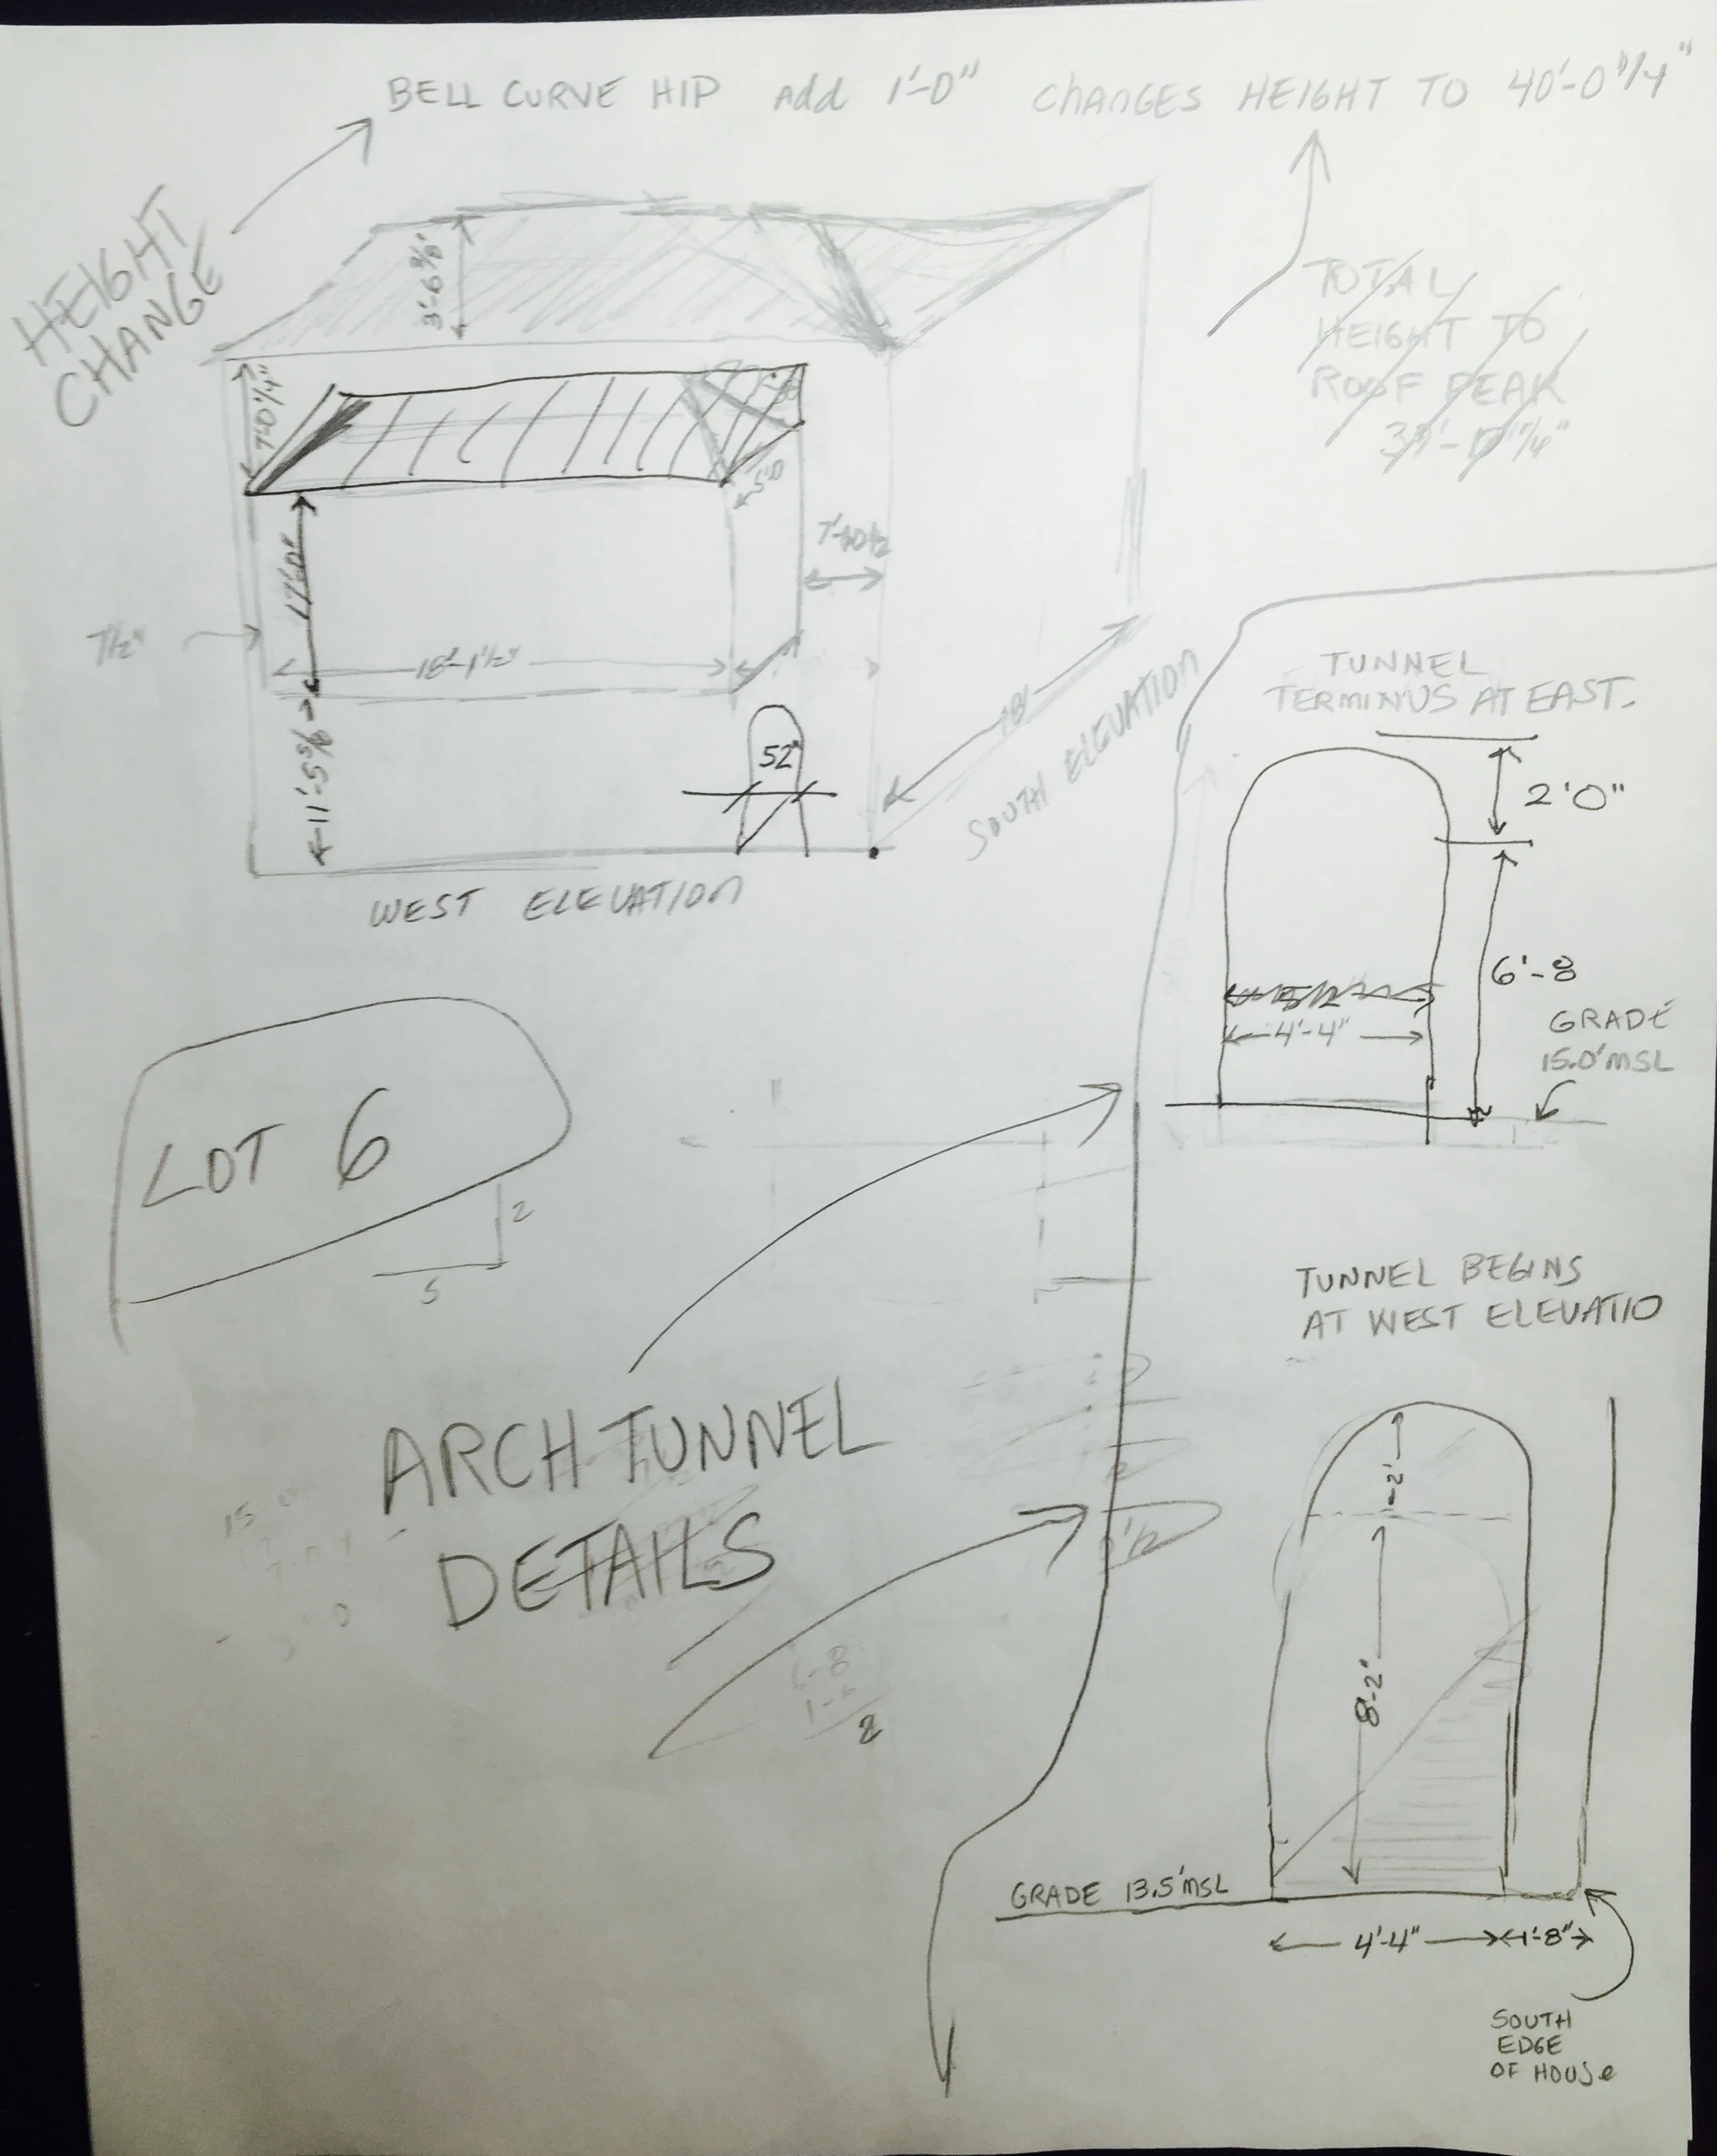 BELL CURVE HIP Add 1'-0" CHANGES HEIGHT TO 40'-0 1/4"
HEIGHT
CHANGE
3'-6 3/8"
TOTAL
HEIGHT TO
ROOF PEAK
7'-0 1/4"
5'0
7'-10 1/2
17'0"
7 1/2"
18'-1 1/2"
11'-5 5/8
52"
18'
SOUTH ELEVATION
WEST ELEVATION
TUNNEL
TERMINUS AT EAST.
2'0"
6'-8
4'-4"
GRADE
15.0'MSL
LOT 6
2
5
TUNNEL BEGINS
AT WEST ELEVATIO
ARCH TUNNEL
DETAILS
6-8
1-6
2
1-2'
8'-2"
GRADE 13.5'MSL
4'-4" 1'-8"
SOUTH
EDGE
OF HOUSe